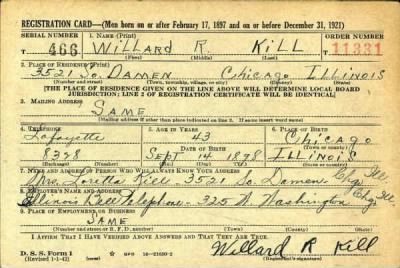 REGISTRATION CARD—(Men born on or after February 17, 1897 and on or before December 31, 1921)
SERIAL NUMBER 1. NAME (Print) ORDER NUMBER
T 466 WILLARD R KILL T 11331
(First) (Middle) (Last)
2. PLACE OF RESIDENCE (Print)
3521 SO. DAMEN CHICAGO ILLINOIS
(Number and street) (Town, township, village, or city) (County) (State)
[THE PLACE OF RESIDENCE GIVEN ON THE LINE ABOVE WILL DETERMINE LOCAL BOARD
JURISDICTION; LINE 2 OF REGISTRATION CERTIFICATE WILL BE IDENTICAL]
3. MAILING ADDRESS
SAME
[Mailing address if other than place indicated on line 2. If same insert word same]
4. TELEPHONE 5. AGE IN YEARS 6. PLACE OF BIRTH
Lafayette 43 CHICAGO
DATE OF BIRTH (Town or county)
8398 SEPT 14 1898 ILLINOIS
(Exchange) (Number) (Mo.) (Day) (Yr.) (State or country)
7. NAME AND ADDRESS OF PERSON WHO WILL ALWAYS KNOW YOUR ADDRESS
Mrs. Loretta Kill - 3521 So. Damen Chgo Ill
8. EMPLOYER'S NAME AND ADDRESS
Illinois Bell Telephone - 325 W. Washington Chgo Ill.
9. PLACE OF EMPLOYMENT OR BUSINESS
SAME
(Number and street or R. F. D. number) (Town) (County) (State)
I AFFIRM THAT I HAVE VERIFIED ABOVE ANSWERS AND THAT THEY ARE TRUE.
D. S. S. Form 1 GPO 16—21630-2 Willard R Kill
(Revised 1-1-42) (over) (Registrant's signature)